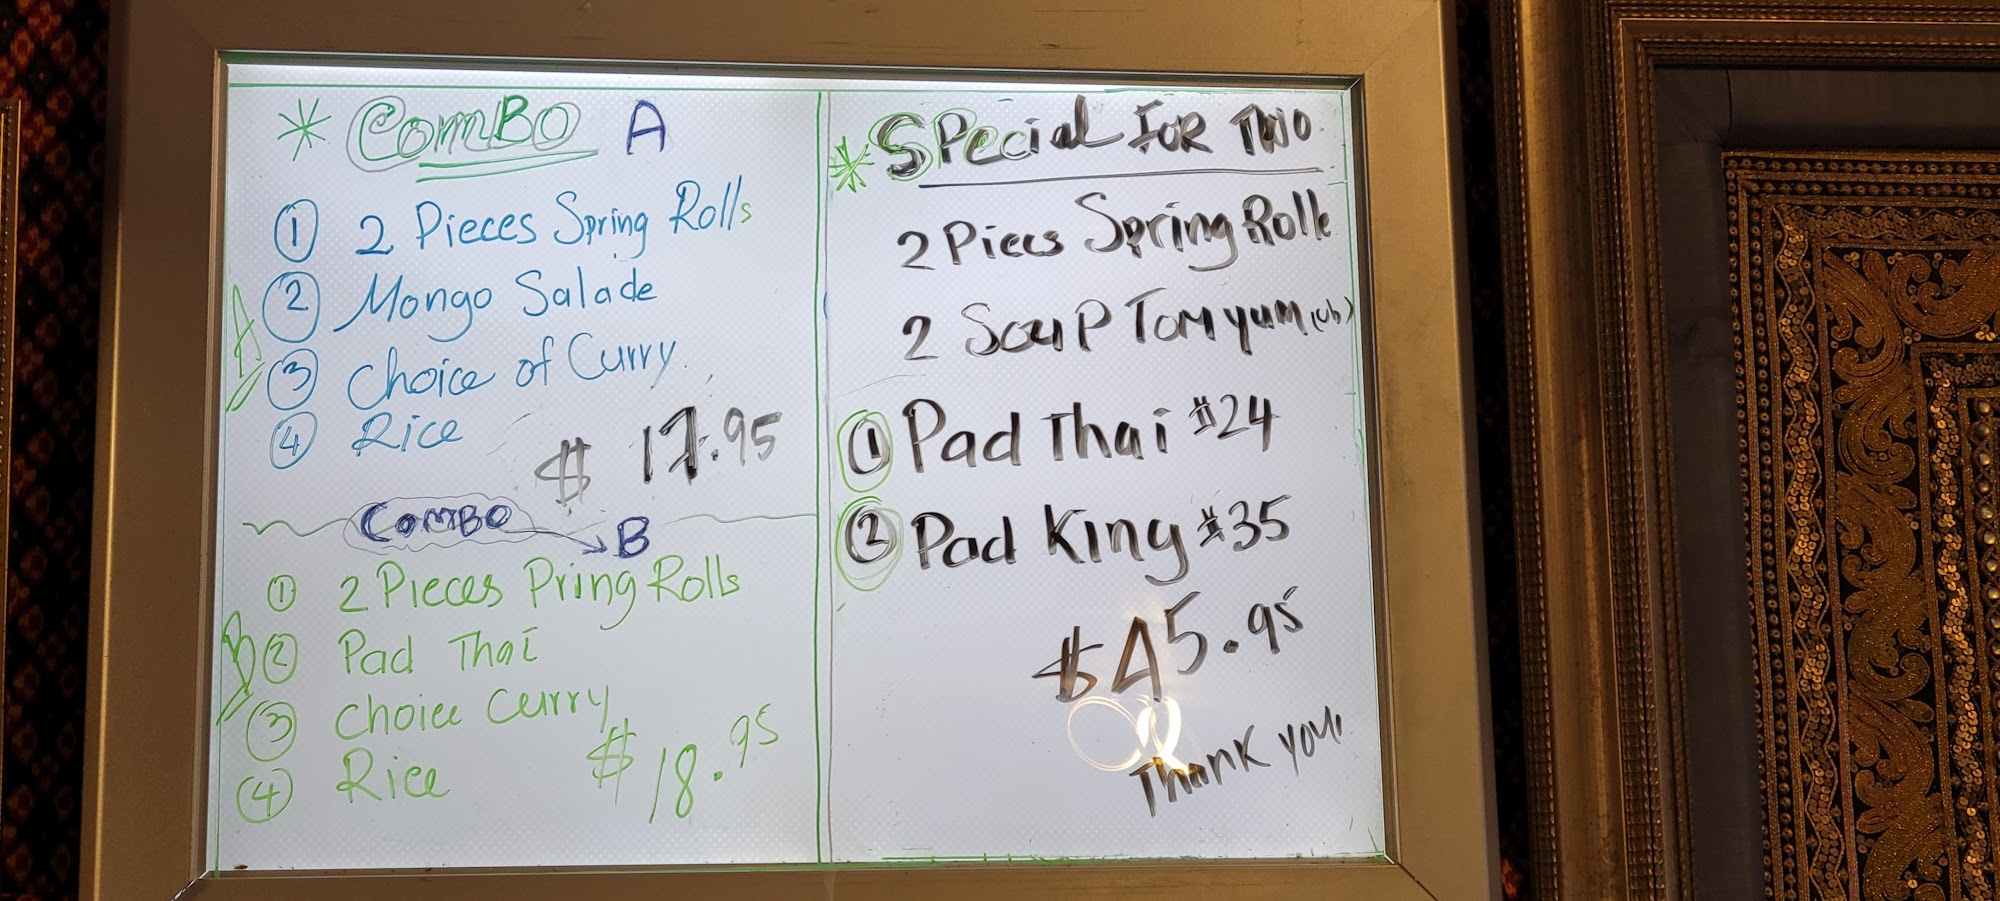 * ComBO A
① 2 Pieces Spring Rolls
② Mongo Salade
③ Choice of Curry.
④ Rice
$ 17.95
A
ComBO B
① 2 Pieces Pring Rolls
② Pad Thai
③ Choice Curry
④ Rice
$18.95
B
* SPecial FOR TWO
2 Pices Spring Rolls
2 Soup Tom yum
① Pad Thai #24
② Pad King #35
$45.95
Thank you